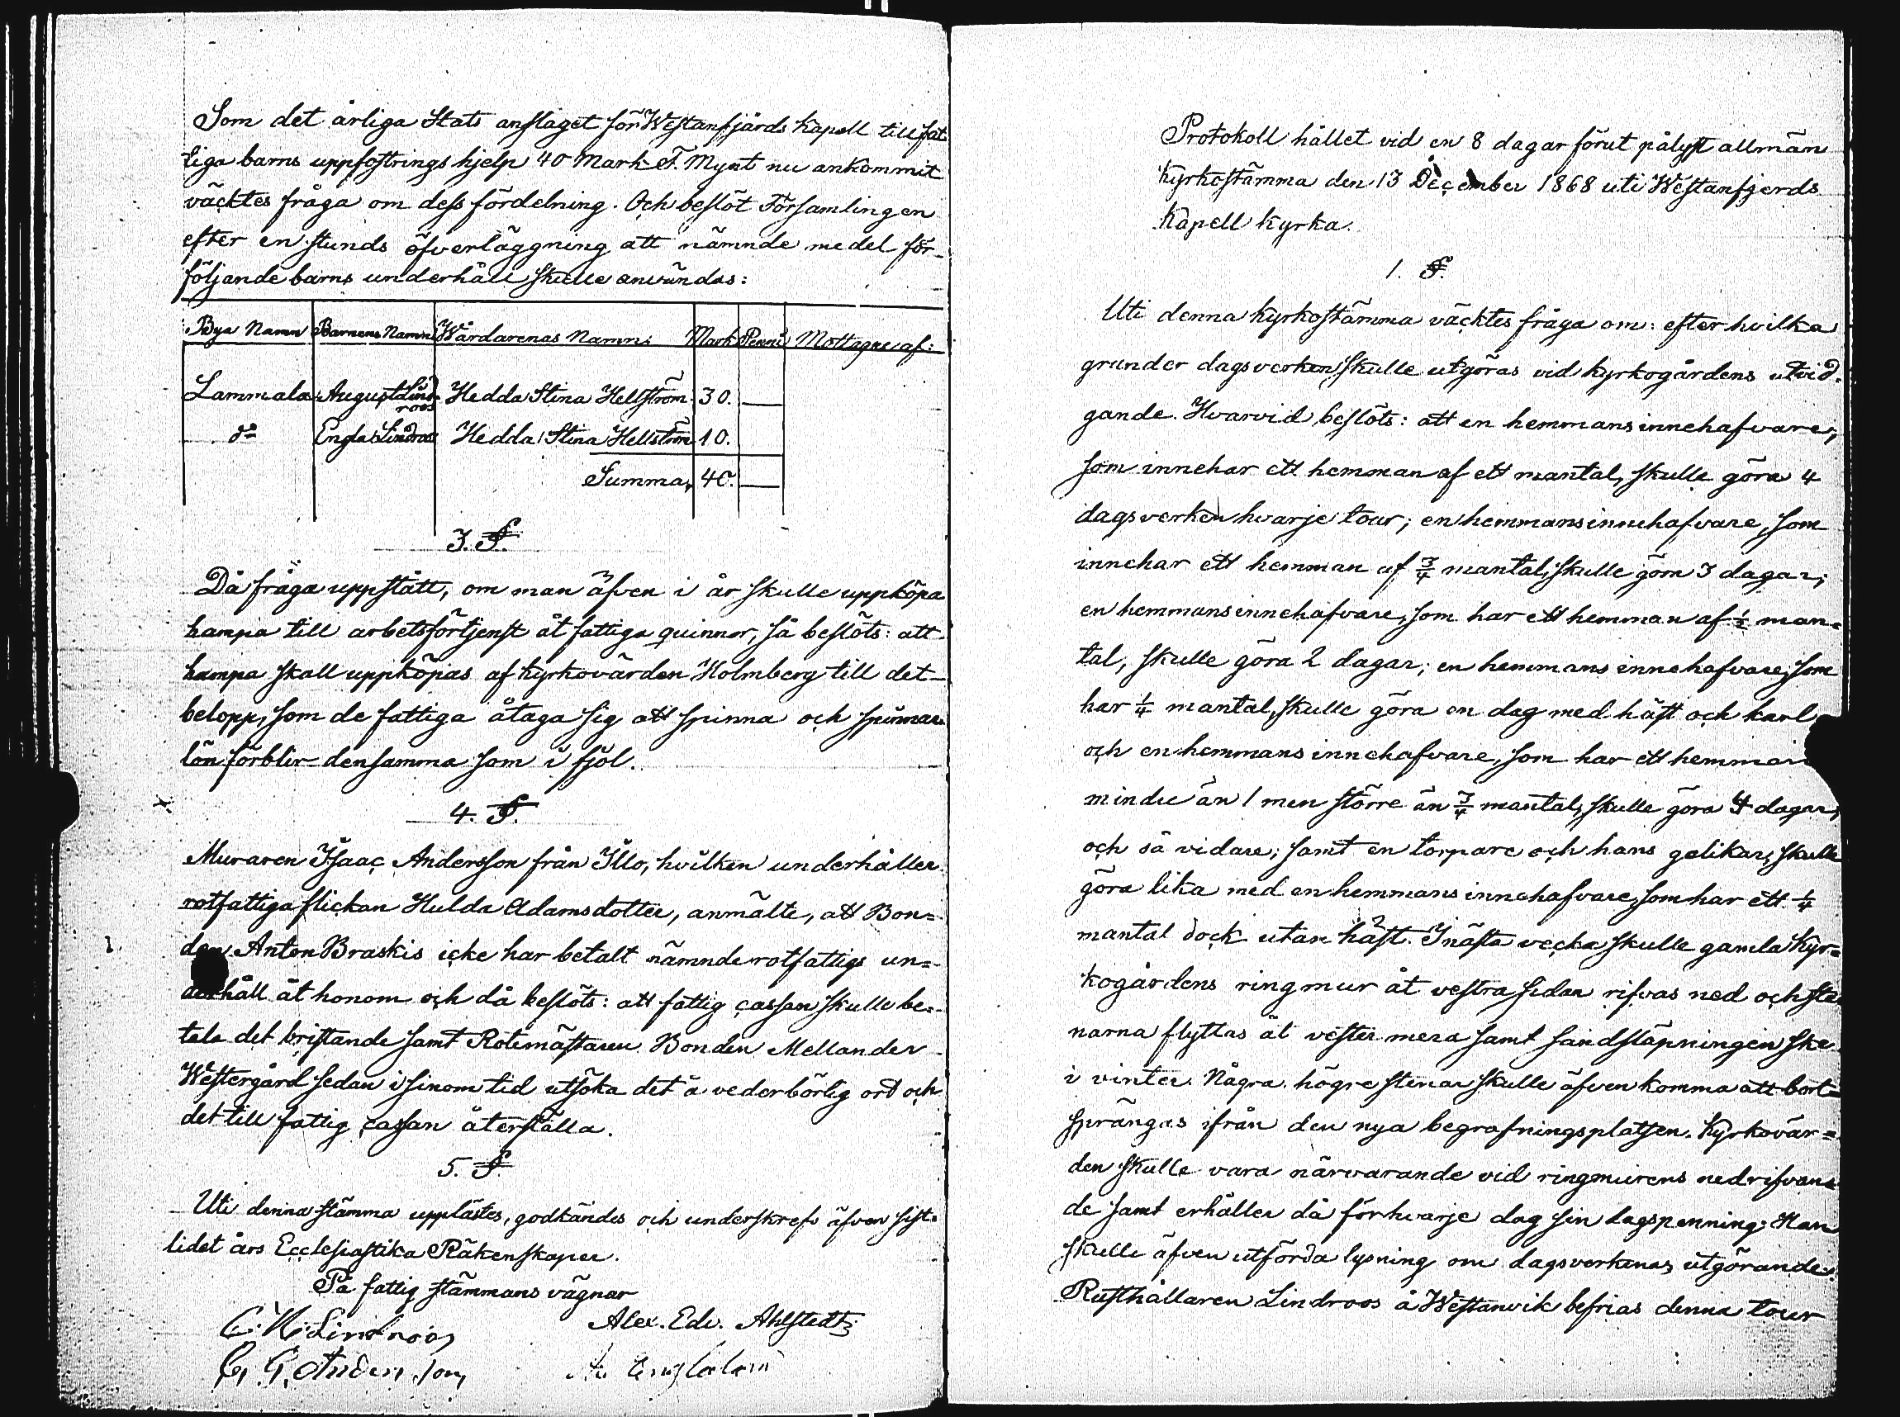 Som det årliga Stats anslaget för Westanfjärds Kapell till fat
tiga barns uppfostrings hjelp 40 Mark F. Mynt nu ankommit
väcktes fråga om dess fördelning. Och beslöt Församlingen
efter en stunds öfverläggning att nämnde medel för
följande barns underhåll skulle användas:
Bya Namn Barnens Namn Wårdarenas Namn Mark Penni Mottagne af:
Lammala August Lind-
roos Hedda Stina Hellström 30. —
do Engla Lindroos Hedda Stina Hellström 10.
Summa, 40. —
3. §.
Då fråga uppstått, om man äfven i år skulle uppköpa
hampa till arbetsförtjenst åt fattiga quinnor, så beslöts: att
hampa skall uppköpas af Kyrkovärden Holmberg till det
belopp, som de fattiga åtaga sig att spinna och spinnare
lön förblir densamma som i fjol.
4. §.
Muraren Isaac Andersson från Illo, hvilken underhåller
rotfattiga flickan Hulda Adamsdotter, anmälte, att Bon=
den Anton Braskis icke har betalt nämnde rotfattigs un=
derhåll åt honom och då beslöts: att fattig cassan skulle be=
tala det bristande samt Rotemästaren Bonden Mellander
Westergård sedan i sinom tid utsöka det å vederbörlig ort och
det till fattig cassan återställa.
5. §.
Uti denna stämma upplästes, godkändes och underskrefs äfven sist=
lidet års Ecclesiastika Räkenskaper.
På fattig stämmans vägnar
C. H. Lindroos Alex. Edv. Ahlstedt
C. G. Anderson
Protokoll hållet vid en 8 dagar förut pålyst allmän
Kyrkostämma den 13 December 1868 uti Westanfjerds
Kapell Kyrka.
1. §.
Uti denna Kyrkostämma väcktes fråga om: efter hvilka
grunder dagsverken skulle utgöras vid Kyrkogårdens utvid=
gande. Hvarvid beslöts: att en hemmansinnehafvare,
som innehar ett hemman af ett mantal, skulle göra 4
dagsverken hvarje tour; en hemmansinnehafvare, som
innehar ett hemman af 3/4 mantal, skulle göra 3 dagar;
en hemmansinnehafvare, som har ett hemman af 1/2 man=
tal, skulle göra 2 dagar; en hemmans innehafvare, som
har 1/4 mantal, skulle göra en dag med häst och karl
och en hemmans innehafvare, som har ett hemman
mindre än 1 men större än 3/4 mantal, skulle göra 4 dagar,
och så vidare; samt en torpare och hans gelikar, skulle
göra lika med en hemmans innehafvare, som har ett 1/4
mantal dock utan häst. I nästa vecka skulle gamla Kyr=
kogårdens ringmur åt vestra sidan rifvas ned och ste
narna flyttas åt vester mera samt sandsläpningen ske
i vinter. Några högre stenar skulle äfven komma att bort=
sprängas ifrån den nya begrafningsplatsen. Kyrkovär=
den skulle vara närvarande vid ringmurens nedrifvan=
de samt erhåller då för hvarje dag sin dagspenning; Han
skulle äfven utförda lysning om dagsverkenas utgörande.
Rusthållaren Lindroos å Westanvik befrias denna tour